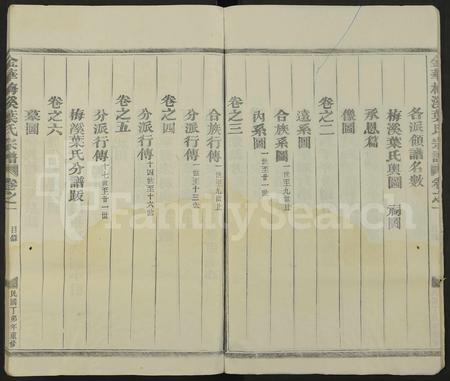 金華梅溪葉氏宗譜
卷之一
各派領譜名數
梅溪葉氏輿圖 祠圖
承恩篇
像圖
卷之二
遠系圖
合族系圖 一世至九世止
內系圖
卷之三
合族行傳 一世至九世止
分派行傳
卷之四
分派行傳 十四世至十六世
卷之五
分派行傳 十七世至廿一世
梅溪葉氏分譜跋
卷之六
墓圖
金華梅溪葉氏宗譜
卷之一
目錄
民國丁卯年重修
FamilySearch